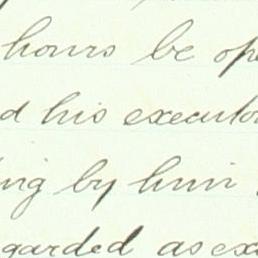 hours be ope
d his executo
ing by him
garded as ex